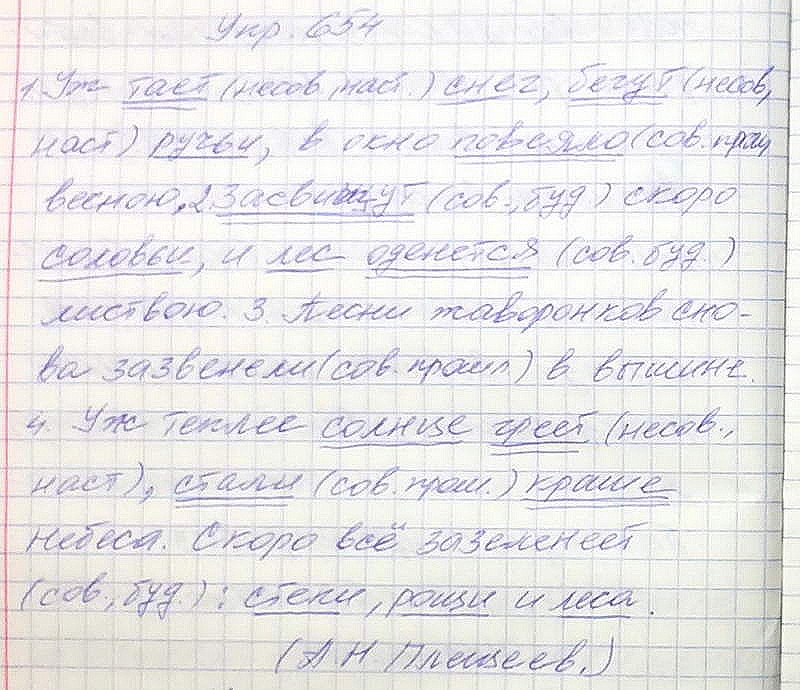 Упр. 654
1. Уж тает (несов., наст.) снег, бегут (несов,
наст) ручьи, в окно повеяло (сов. прош
весною. 2. Засвищут (сов., буд.) скоро
соловьи, и лес оденется (сов. буд.)
листвою. 3. Песни жаворонков сно-
ва зазвенели (сов. прошл.) в вышине.
4. Уж теплее солнце греет (несов.,
наст), стали (сов. прош.) краше
небеса. Скоро всё зазеленеет
(сов., буд.): степи, рощи и леса.
(А Н Плещеев.)